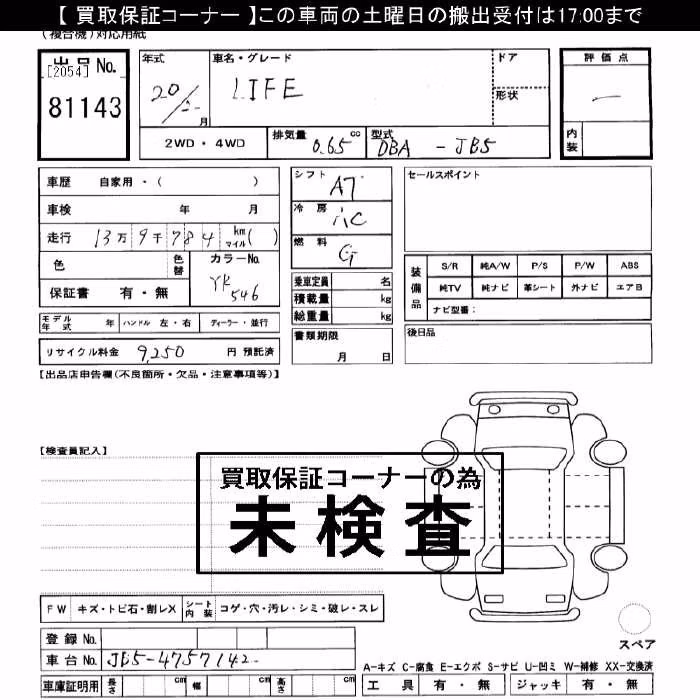 【 買取保証コーナー 】この車両の土曜日の搬出受付は17:00まで
(複合機)対応用紙
出品 No.
[2054]
81143
年式
20/2- 月
車名・グレード
LIFE
ドア
形状
評価点
内装
2WD・4WD
排気量 0.65 cc
型式 DBA - JB5
車歴 自家用・( )
車検 年 月
走行 13万9千784 km マイル( )
色
色替
カラーNo.
YR546
保証書 有・無
シフト AT
冷房 AC
燃料 G
乗車定員 名
積載量 kg
総重量 kg
セールスポイント
装備品
S/R 純A/W P/S P/W ABS
純TV 純ナビ 革シート 外ナビ エアB
ナビ型番:
モデル年式 年 ハンドル 左・右 ディーラー・並行
リサイクル料金 9,250 円 預託済
書類期限
月 日
後日品
【出品店申告欄(不良箇所・欠品・注意事項等)】
【検査員記入】
買取保証コーナーの為
未検査
FW キズ・トビ石・割レX シート内装 コゲ・穴・汚レ・シミ・破レ・スレ
登録 No.
車台 No. JB5-4757142-
車庫証明用 長さ cm 幅 cm 高さ cm
スペア
A-キズ C-腐食 E-エクボ S-サビ U-凹ミ W-補修 XX-交換済
工具 有・無 ジャッキ 有・無